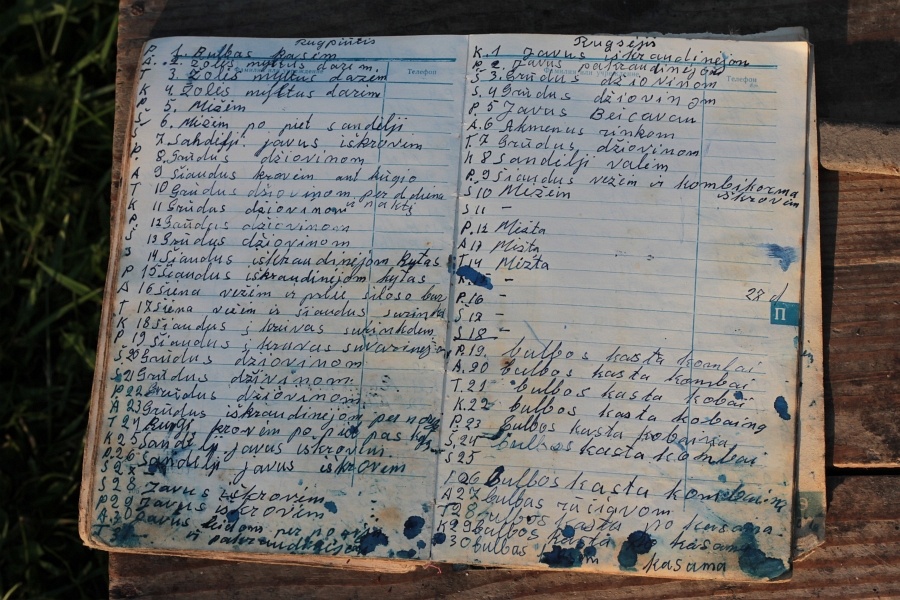 Rugpiūtis
P. 1. Bulbas kasim
A. 2. Žoles myltus darem.
T 3. Žoles myltus darem
K 4 Žoles myltus darem
P. 5. Mižem
Š 6. Mižem po piet sandėlji
7. Sandėlji javus iškrovėm
P. 8. Grūdus džiovinom
A 9 Šiaudus krovėm ant
T 10 Grūdus džiovinom per diena
ir naktį
K 11 Grūdus džiovinom
P. 12 Grūdus džiovinom
Š 13 Grūdus džiovinom
14 Šiaudus iškraudinėjom kytas
P 15 Šiaudus iškraudinėjom kytas
A 16 Šiena vežėm ir prie siloso
T 17 Šiena vežėm ir šiaudus
K 18 Šiaudus į kruvas surinkdem
P. 19 Šiaudus į kruvas
Š 20 Grūdus džiovinom
S 21 Grūdus džiovinom
P. 22 Grūdus džiovinom
A 23 Grūdus iškraudinėjom per
T 24 Rugį krovėm po piet pas
K 25 Sandėlji javus iškrovėm
P. 26 Sandėlji javus iškrovėm
S 27
S 28 Javus iškrovėm
P 29 Javus iškrovėm
A 30 Javus leidom per
ir
Телефон
Rugsėjis
K. 1 Javus iškraudinėjom
P. 2 Javus pakraudinėjom
Š 3. Grūdus džiovinom
S. 4 Grūdus džiovinom
P. 5 Javus Beicavau
A. 6 Akmenus rinkom
T. 7 Grūdus džiovinom
K 8 Sandėlji valėm
P. 9 Šiaudus vežėm ir kombikorma
iškrovėm
Š 10 Mižem
S 11 –
P. 12 Mišta
A 13 Mišta
T 14 Mižta
K.
P. 16 –
Š 17 –
S 18 –
27 d
П
P. 19. bulbos kasta kombai
A. 20 bulbos kasta kombai
T. 21 bulbos kasta kobai
K. 22 bulbos kasta kobaing
P. 23 bulbos kasta
Š. 24 bulbos kasta kombai
S 25
26 Bulbos kasta
A 27 bulbas
T 28 bulbos kasta po kasama
K 29 bulbos kasta po kasama
30 bulbas
kasama
Телефон